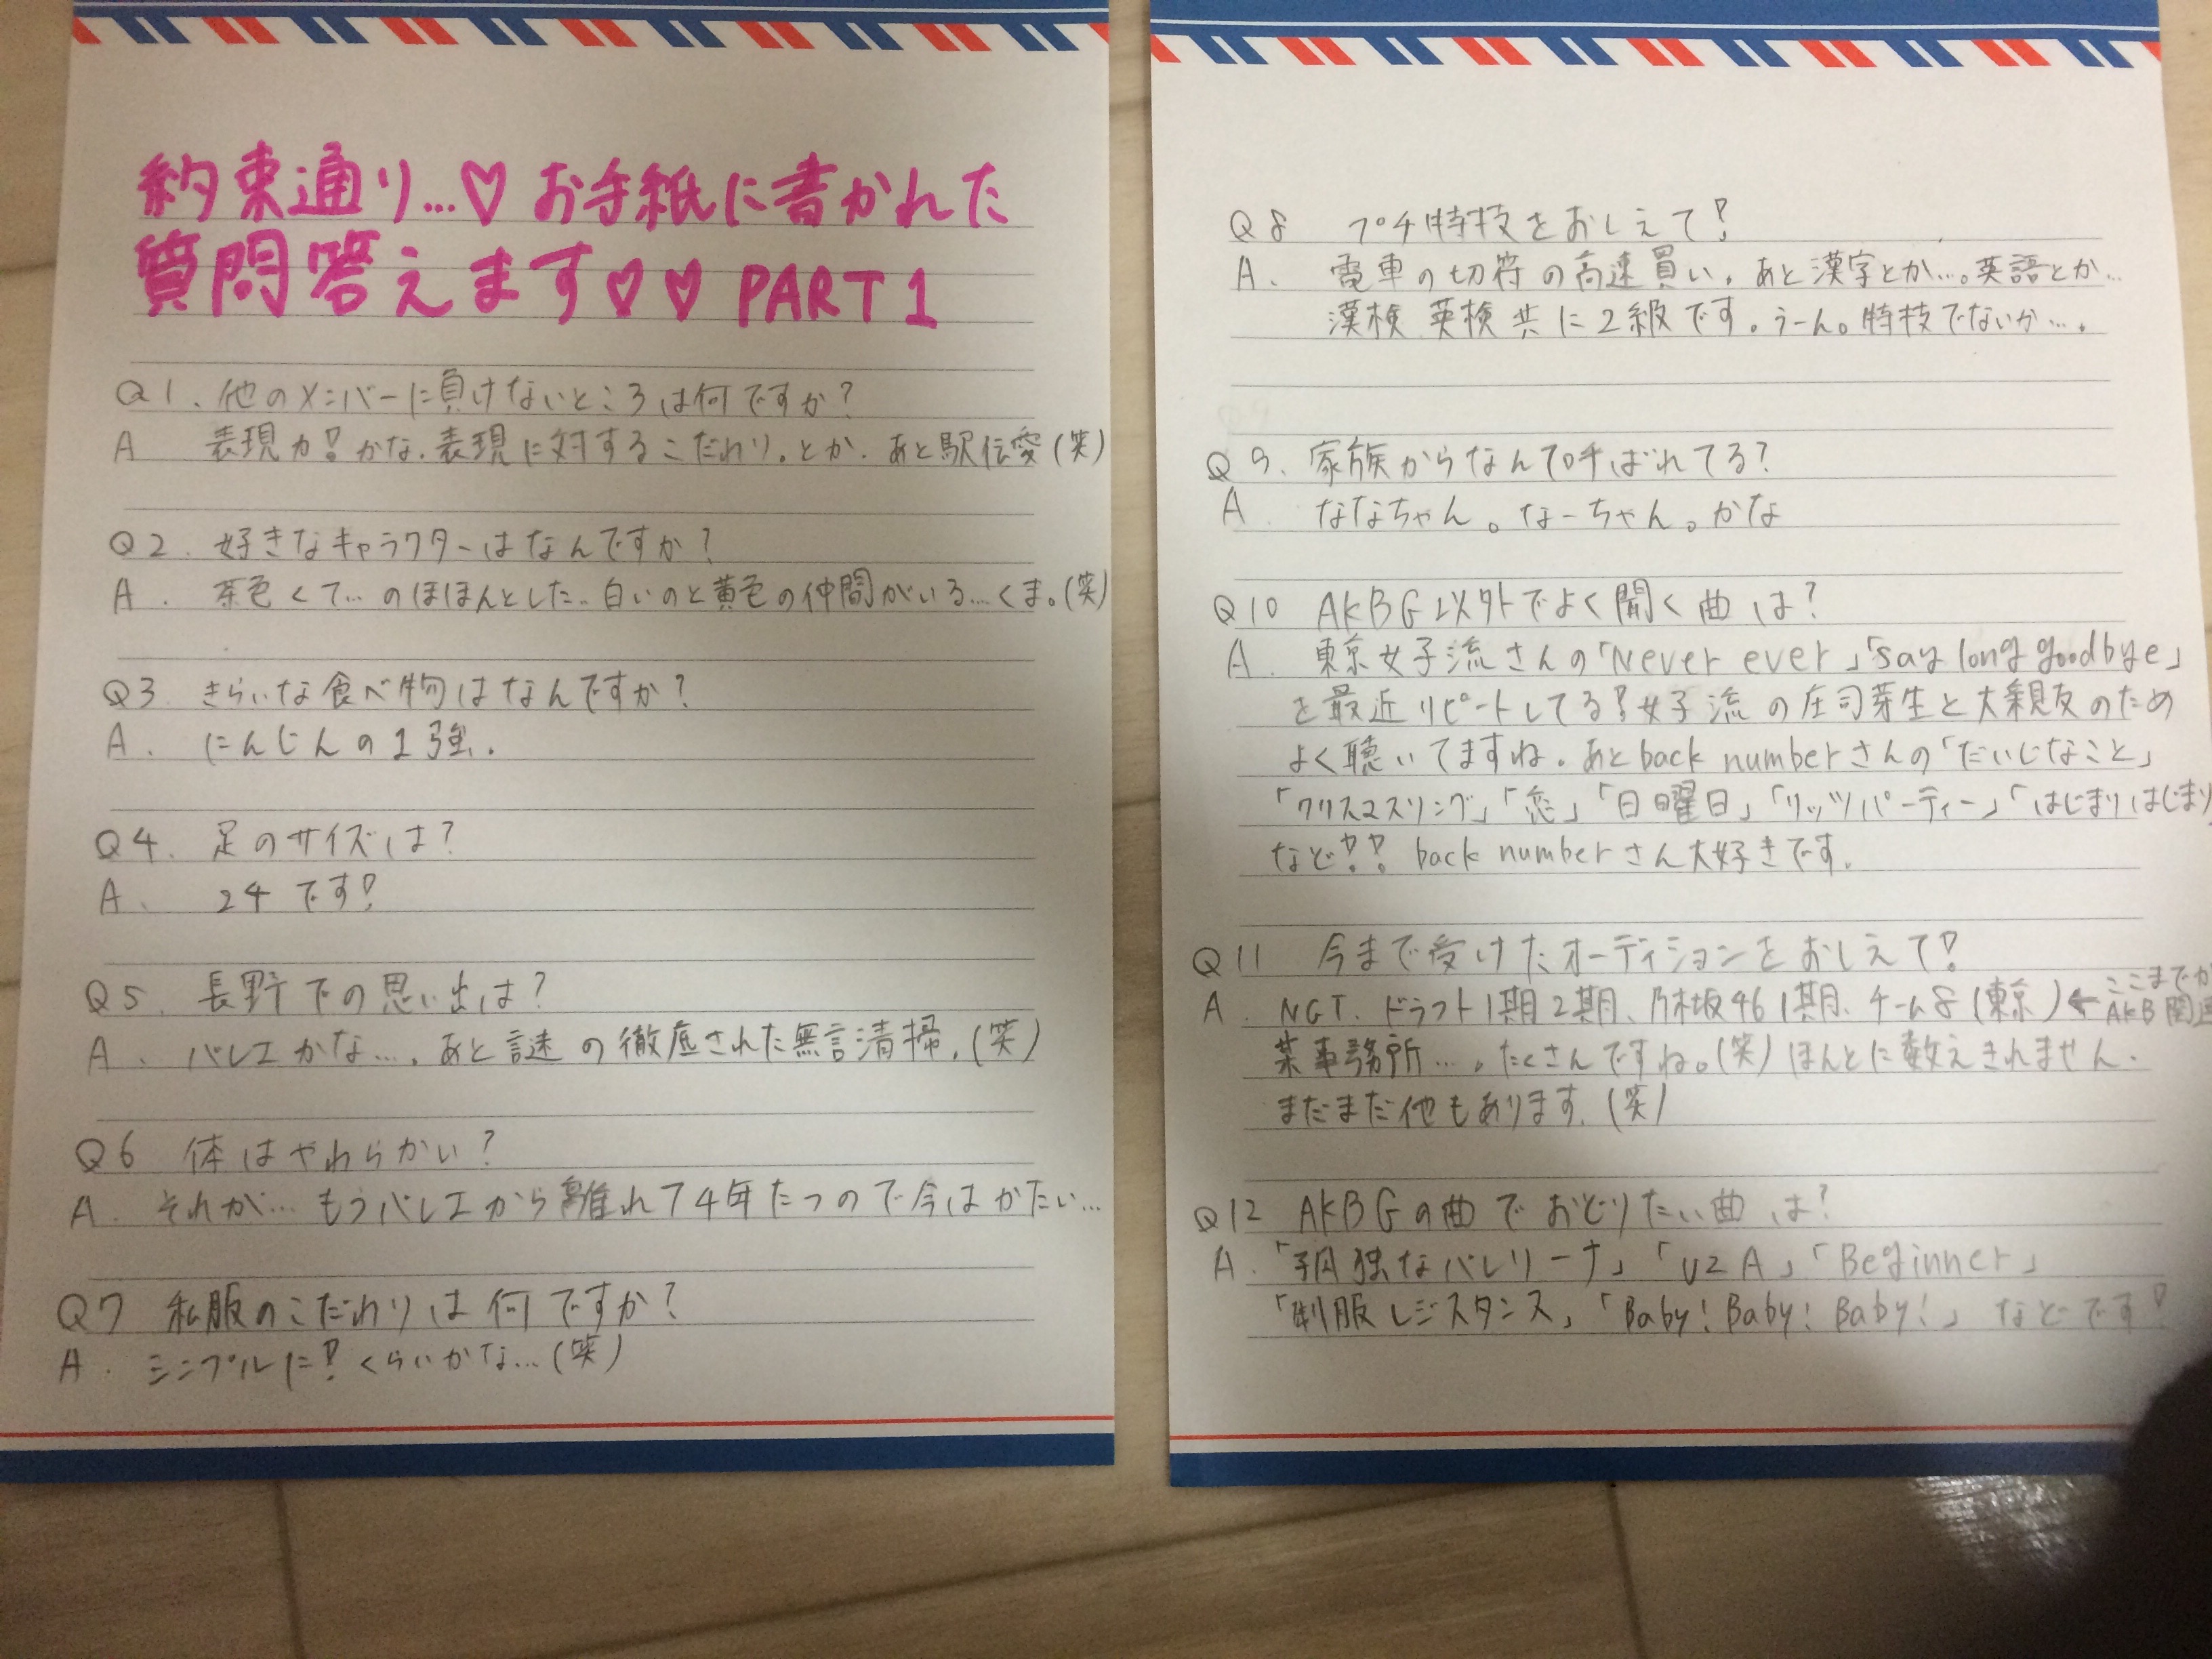 約束通り...♡お手紙に書かれた
質問答えます♡♡PART1
Q1. 他のメンバーに負けないところは何ですか?
A 表現力!かな.表現に対するこだわり。とか.あと駅伝愛(笑)
Q2. 好きなキャラクターはなんですか?
A. 茶色くて…のほほんとした..白いのと黄色の仲間がいる…くま。(笑)
Q3 きらいな食べ物はなんですか?
A. にんじんの1強.
Q4. 足のサイズは?
A. 24です!
Q5. 長野での思い出は?
A. バレエかな….あと謎の徹底された無言清掃.(笑)
Q6 体はやわらかい?
A. それが…もうバレエから離れて4年たつので今はかたい…
Q7 私服のこだわりは何ですか?
A. シンプルに!くらいかな…(笑)
Q8 プチ特技をおしえて!
A. 電車の切符の高速買い.あと漢字とか…。英語とか…
漢検 英検共に2級です。うーん。特技でないか….
Q9. 家族からなんて呼ばれてる?
A. ななちゃん。なーちゃん。かな
Q10 AKBG以外でよく聞く曲は?
A. 東京女子流さんの「Never ever」「say long goodbye」
を最近リピートしてる!女子流の庄司芽生と大親友のため
よく聴いてますね.あとback numberさんの「だいじなこと」
「クリスマスソング」「恋」「日曜日」「リッツパーティー」「はじまりはじまり
など!! back numberさん大好きです.
Q11 今まで受けたオーディションをおしえて!
A. NGT、ドラフト1期2期、乃木坂46 1期、チーム8(東京)←ここまでが
AKB関連
某事務所….たくさんですね。(笑)ほんとに数えきれません.
まだまだ他もあります.(笑)
Q12 AKBGの曲でおどりたい曲は?
A. 「孤独なバレリーナ」「UZA」「Beginner」
「制服レジスタンス」「Baby! Baby! Baby!」などです!